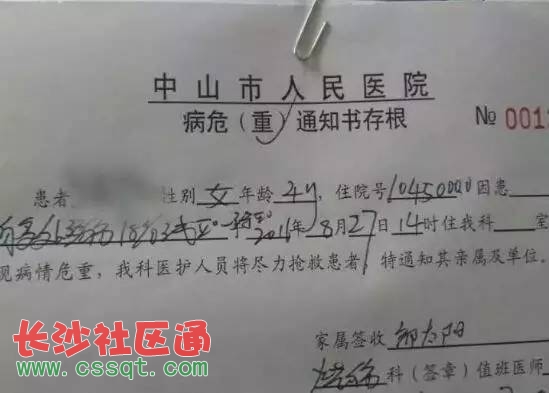 中山市人民医院
病危（重）通知书存根
№ 001
患者 性别 女 年龄 24y，住院号 10450000 因患
2016年8月27日14时住我科 室
现病情危重，我科医护人员将尽力抢救患者，特通知其亲属及单位。
家属签收
科（签章）值班医师
长沙社区通
www.cssqt.com